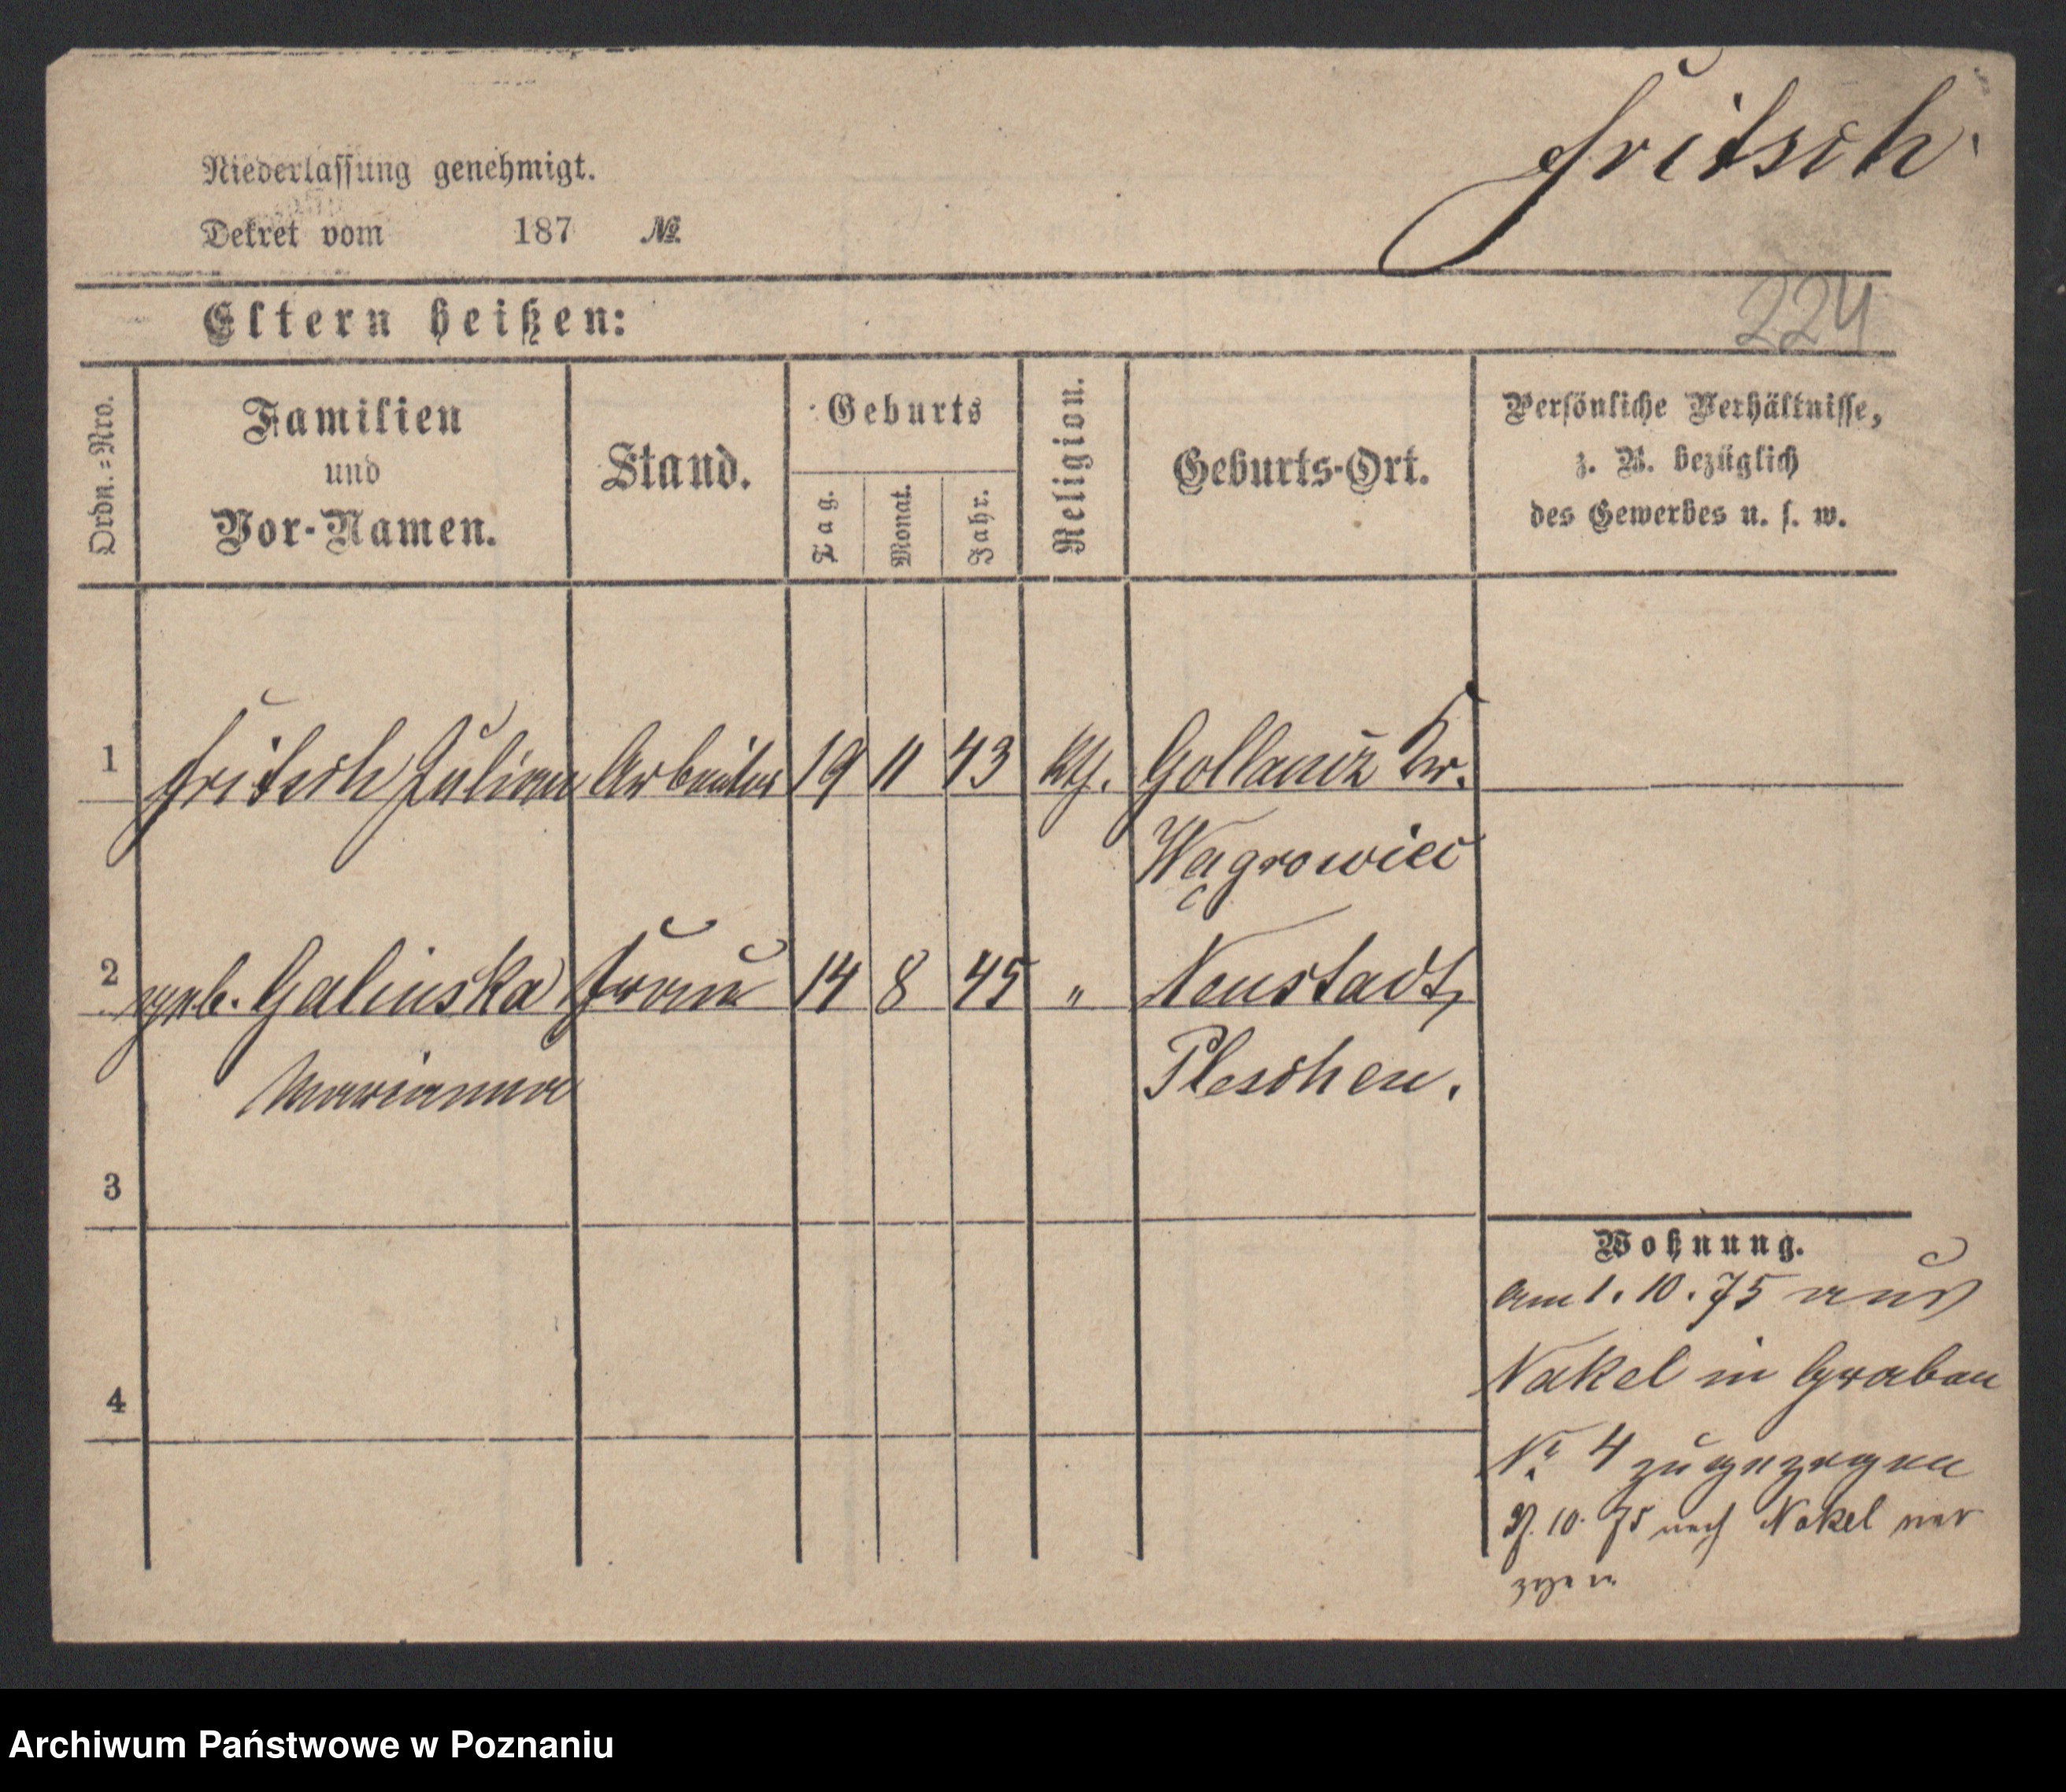 Fritsch.
Niederlassung genehmigt.
Dekret vom 187 №
224
Eltern heißen:
Ordn.=Nro.
Familien
und
Vor-Namen.
Stand.
Geburts
Tag.
Monat.
Jahr.
Religion.
Geburts-Ort.
Persönliche Verhältnisse,
z. B. bezüglich
des Gewerbes u. s. w.
1 Fritsch Julian Arbeiter 19 11 43 kth. Gollancz Kr.
Wągrowiec
2 geb. Galinska Frau 14 8 45 " Neustadt,
Marianna Pleschen.
3
Wohnung.
am 1. 10. 75 aus
Nakel in Graben
4
Nr. 4 zugezogen
10. 75 nach Nakel ver
zogen
Archiwum Państwowe w Poznaniu